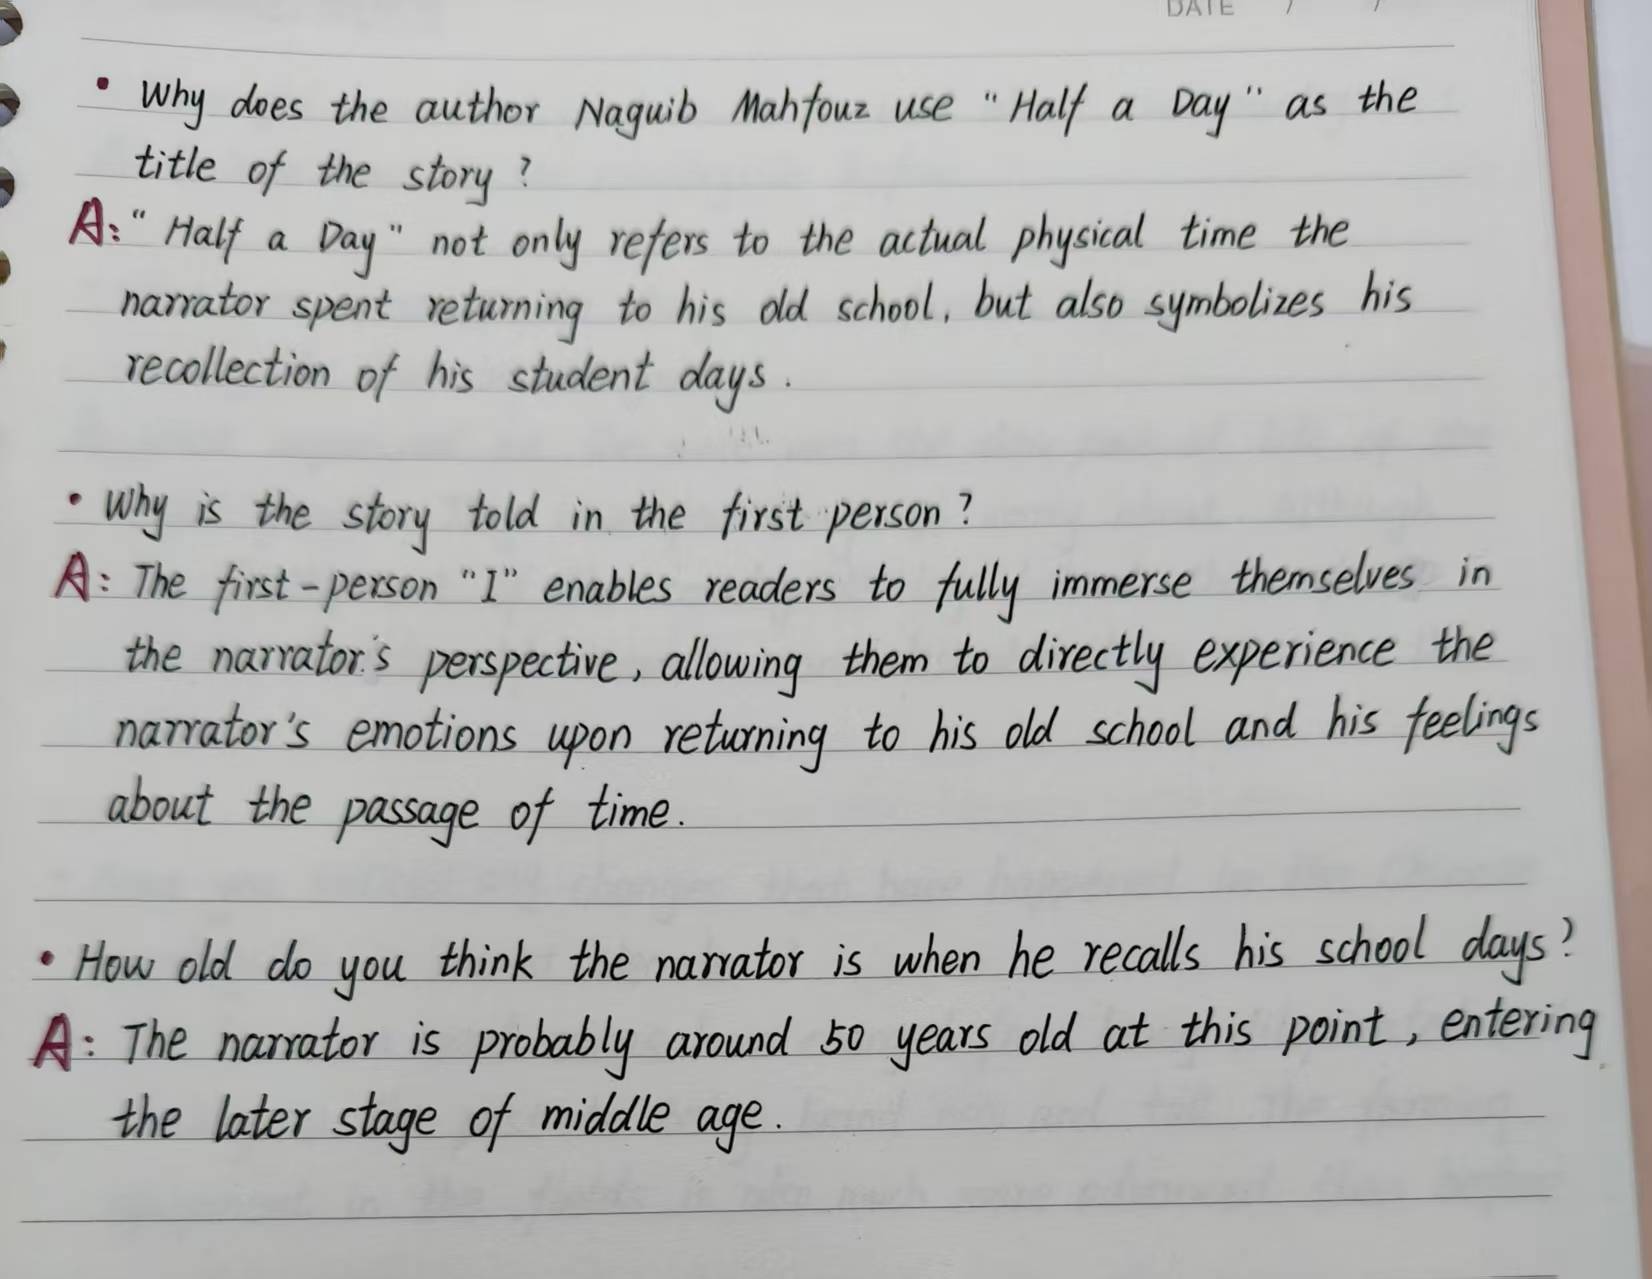 DATE / /
• Why does the author Naguib Mahfouz use "Half a Day" as the
title of the story?
A: "Half a Day" not only refers to the actual physical time the
narrator spent returning to his old school, but also symbolizes his
recollection of his student days.
• Why is the story told in the first person?
A: The first-person "I" enables readers to fully immerse themselves in
the narrator's perspective, allowing them to directly experience the
narrator's emotions upon returning to his old school and his feelings
about the passage of time.
• How old do you think the narrator is when he recalls his school days?
A: The narrator is probably around 50 years old at this point, entering
the later stage of middle age.